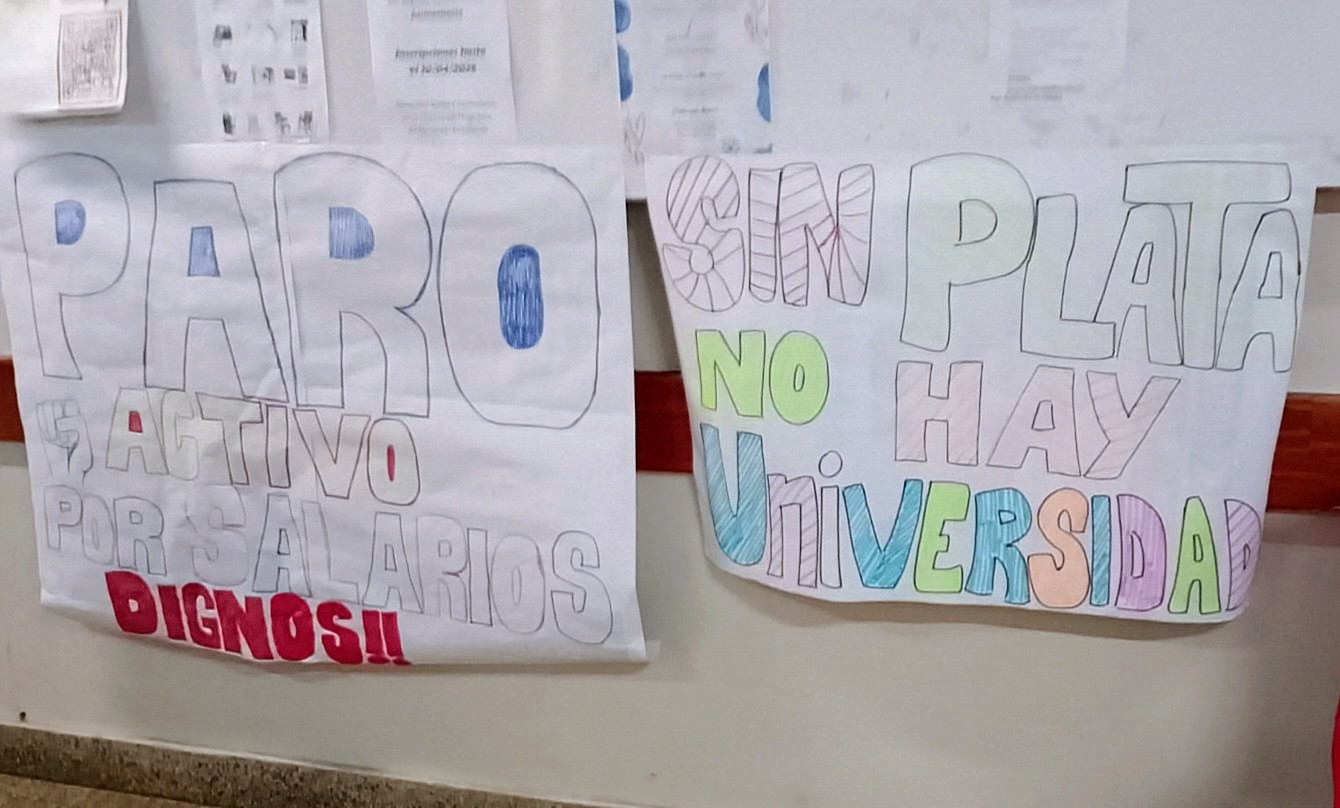 Inscripciones hasta
PARO
ACTIVO
POR SALARIOS
DIGNOS!!
SIN PLATA
NO HAY
UniVERSIDAD